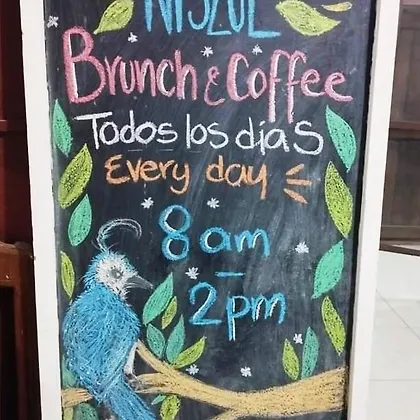 NIJZUL
Brunch & Coffee
Todos los días
Every day
8 am
-
2pm